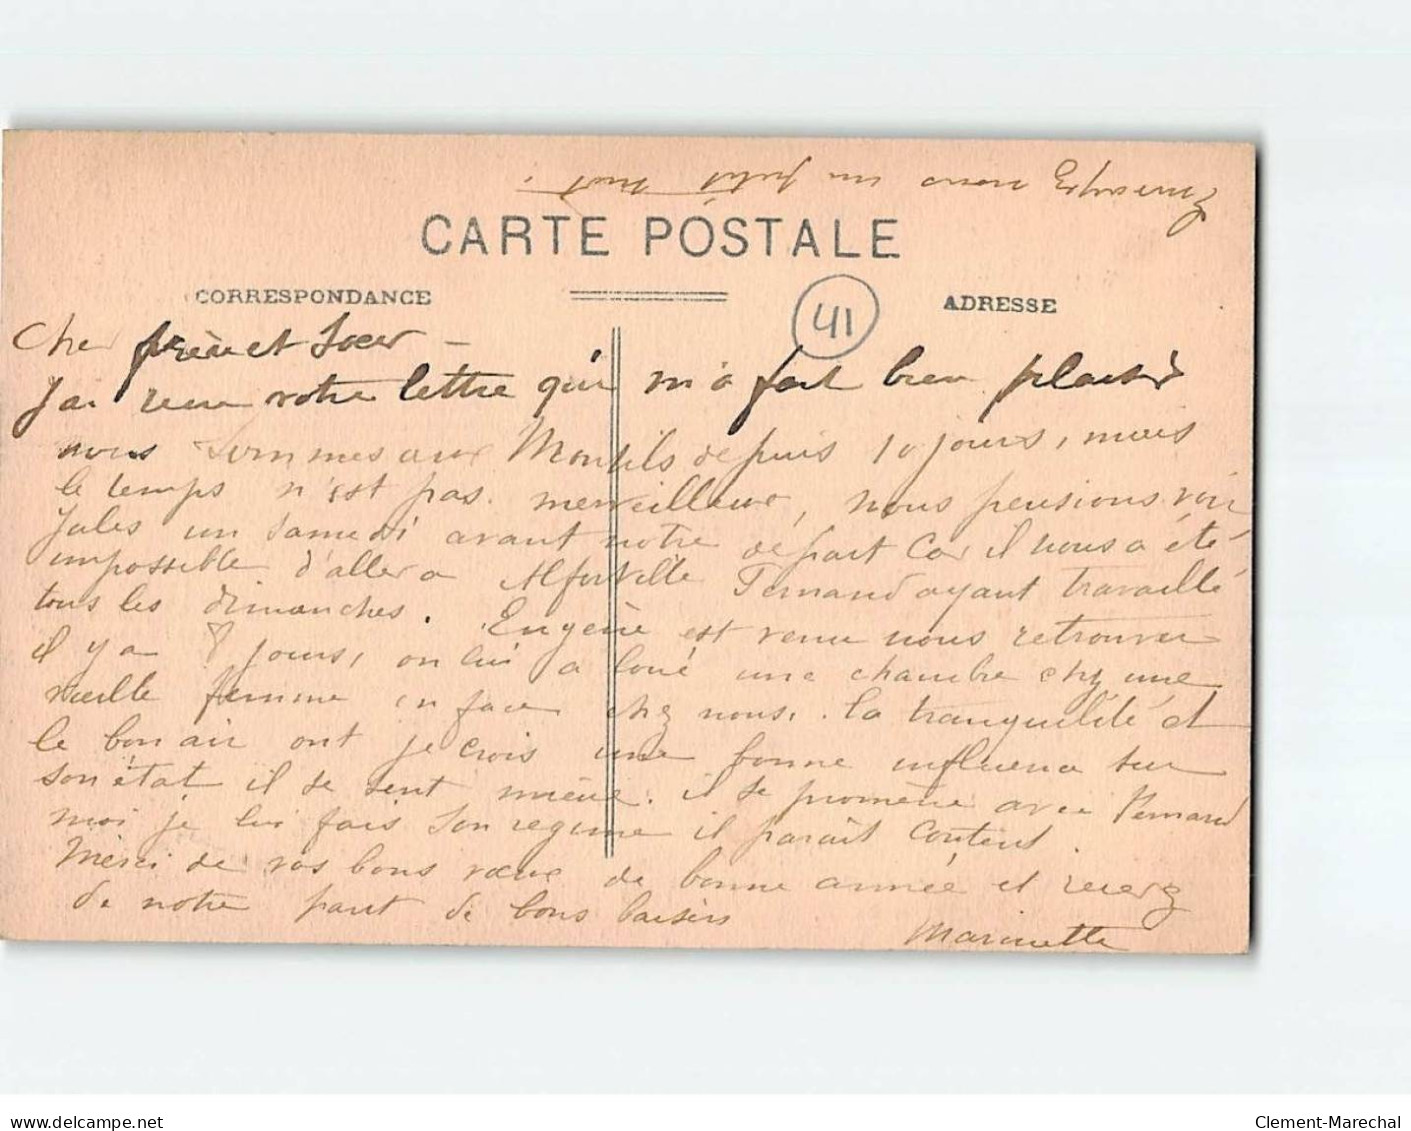 Envoyez nous un petit mot.
CARTE POSTALE
CORRESPONDANCE
ADRESSE
41
Cher frère et Soeur -
J'ai reçu votre lettre qui m'a fait bien plaisir
nous sommes aux Montils depuis 10 jours, mais
le temps n'est pas merveilleux, nous pensions voir
Jules un samedi avant notre départ Car il nous a été
impossible d'aller a Alfortville Fernand ayant travaillé
tous les dimanches. Eugène est venu nous retrouver
il y a 8 jours, on lui a loué une chambre chez une
vieille femme en face chez nous. la tranquilité et
le bon air ont je crois une bonne influence sur
son état il se sent mieux. il se promène avec Fernand
moi je lui fais son regime il parait content.
Merci de vos bons voeux de bonne année et recevez
de notre part de bons baisers
Marinette
delcampe.net
Clement-Marechal